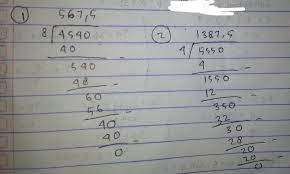 ① 567,5
8 4540
40
540
48
60
56
40
40
0
② 1387,5
4 5550
4
1550
12
350
32
30
28
20
20
0